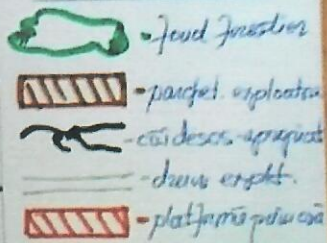 - fond forestier
- parchet exploatare
- căi desos-apropiat
- drum explt.
- platformă primară